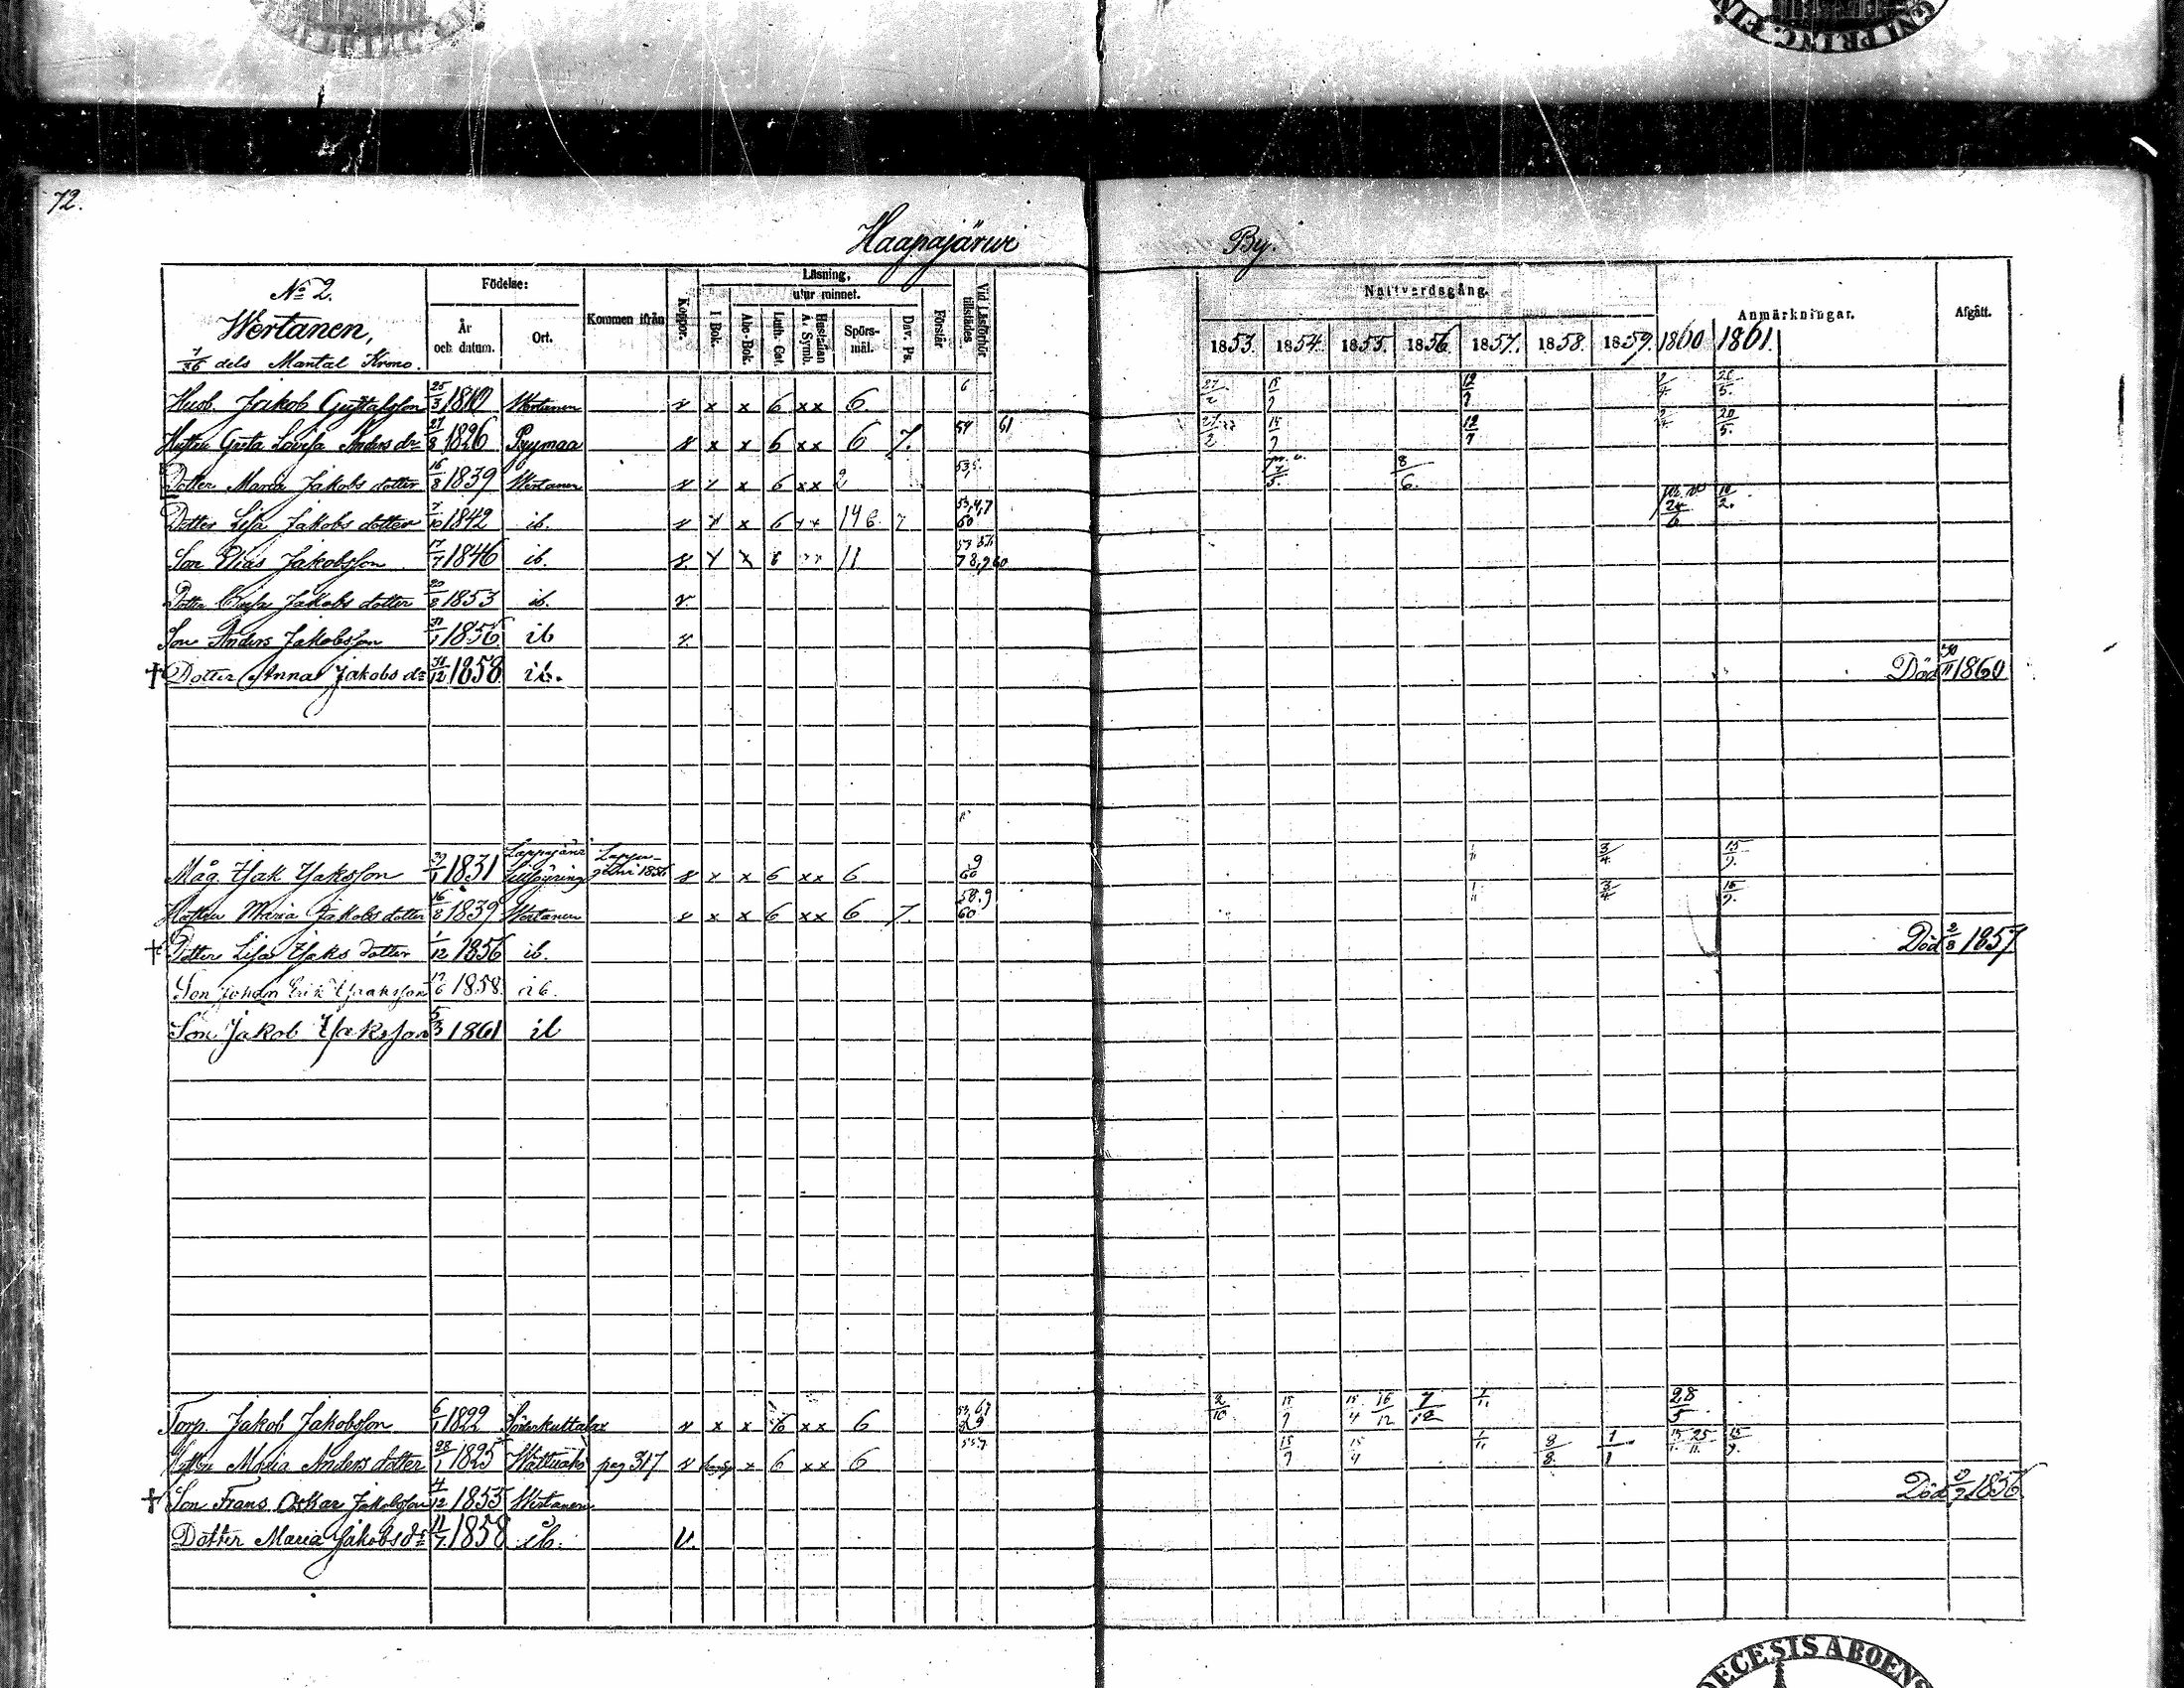 72.
Haapajärwi By.
No 2.
Wertanen,
7/36 dels Mantal Krono.
Födelse:
År och datum.
Ort.
Kommen ifrån
Koppor.
Läsning,
utur minnet.
I Bok.
Abc-Bok.
Luth. Cat.
Hustaflan A. Symb.
Spörsmål.
Dav. Ps.
Förstår
Vid Läsförhör tillstädes
Nattvardsgång.
1853. 1854. 1855. 1856. 1857. 1858. 1859. 1860 1861.
Anmärkningar.
Afgått.
Husb. Jakob Gustafsson 25/3 1810 Wertanen v x x 6 xx 6 6 27/2 15/7 12/7 2/4 26/5.
Hustru Greta Lovisa Anders dr 27/8 1826 Pyymaa v x x 6 xx 6 7. 54 61 27/2 15/7 12/7 2/4 20/5.
Dotter Maria Jakobs dotter 16/8 1839 Wertanen v x x 6 xx 8/6.
Dotter Lisa Jakobs dotter 7/10 1842 ib. v x x 6 xx 14 6. 7 53,4,7 60 24/6 10/2.
Son Elias Jakobsson 17/7 1846 ib. v. x x 6 xx 11 7 8,9 60
Dotter Jakobs dotter 20/2 1853 ib. v.
Son Anders Jakobsson 31/1 1856. ib v.
† Dotter Anna Jakobs dr 31/12 1858 ib. Död 30/11 1860
Måg Isak Isaksson 29/1 1831 Lappajärvi v x x 6 xx 6 9 60 1/11 3/4 15/9.
Hustru Maria Jakobs dotter 16/8 1839 Wertanen v x x 6 xx 6 7. 58.9 60 1/11 3/4 15/9.
† Dotter Lisa Isaks dotter 1/12 1856 ib. Död 2/8 1857
Son Johan Erik Isaaksson 17/6 1858. ib.
Son Jakob Isaksson 5/3 1861 ib
Torp. Jakob Jakobsson 6/1 1822 v x x 6 xx 6 2/10 15/7 15/4 16/12 7/12 1/11 28/5
Hustru Maria Anders dotter 28/1 1825 pag 317 v x 6 xx 6 15/7 15/4 1/11 8/8. 1/1 15/9.
† Son Frans Oskar Jakobsson 4/12 1855 Wertanen Död 1856.
Dotter Maria Jakobs dr 11/7. 1858 ib. v.
DECESIS ABOENS